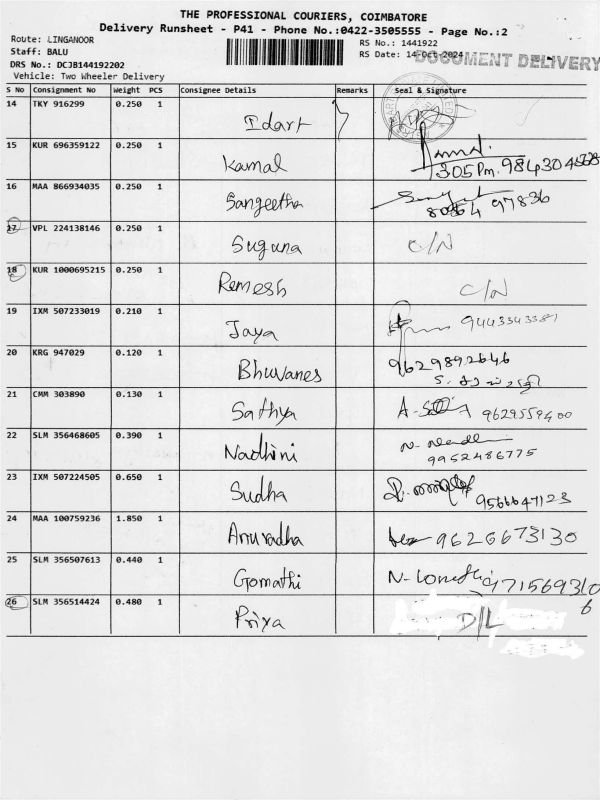 THE PROFESSIONAL COURIERS, COIMBATORE
Delivery Runsheet - P41 - Phone No.:0422-3505555 - Page No.:2
Route: LINGANOOR
RS No.: 1441922
Staff: BALU
RS Date: 14-Oct-2024
DOCUMENT DELIVERY
DRS No.: DCJB144192202
Vehicle: Two Wheeler Delivery
S No Consignment No Weight PCS Consignee Details Remarks Seal & Signature
14 TKY 916299 0.250 1 Idart
15 KUR 696359122 0.250 1 Kamal
305 Pm.
16 MAA 866934035 0.250 1 Sangeetha
17 VPL 224138146 0.250 1 Suguna C/N
18 KUR 1000695215 0.250 1 Remesh C/N
19 IXM 507233019 0.210 1 Jaya 9443343381
20 KRG 947029 0.120 1 Bhuvanes 9629892646
21 CMM 303890 0.130 1 Sathya 9629559400
22 SLM 356468605 0.390 1 Nadhini
9952486775
23 IXM 507224505 0.650 1 Sudha 9566647123
24 MAA 100759236 1.850 1 Anuradha 9626673130
25 SLM 356507613 0.440 1 Gomathi 9715693106
26 SLM 356514424 0.480 1 Priya D/L